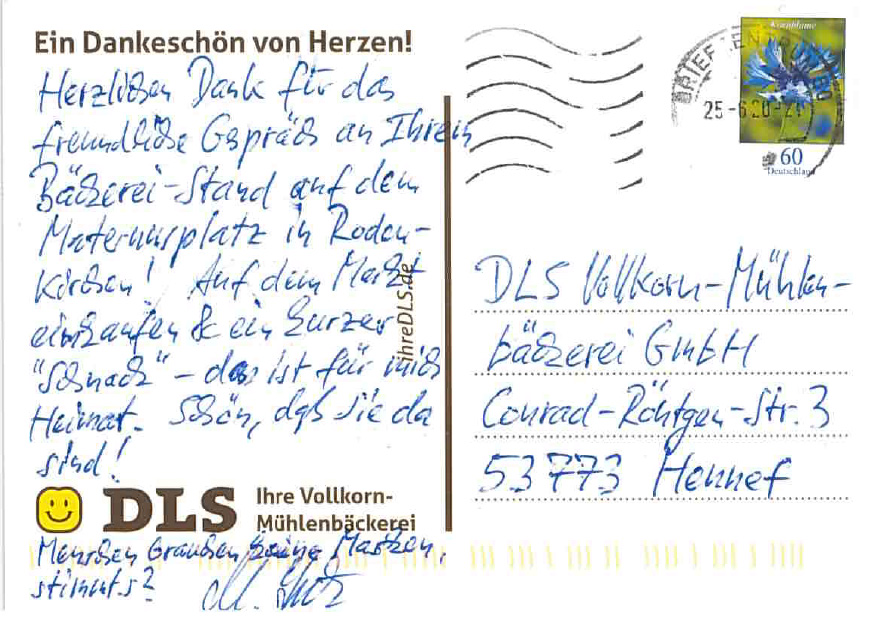 Ein Dankeschön von Herzen!
Herzlichen Dank für das
freundliche Gespräch an Ihrem
Bäckerei-Stand auf dem
Maternusplatz in Roden-
kirchen! Auf dem Markt
einkaufen & ein kurzer
"Schnack" – das ist für mich
Heimat. Schön, daß Sie da
sind!
DLS
Ihre Vollkorn-
Mühlenbäckerei
Menschen brauchen keine Marken,
stimmt's?
ihreDLS.de
Kornblume
BRIEFZENTRUM
25-6.20-21
60
Deutschland
DLS Vollkorn-Mühlen-
bäckerei GmbH
Conrad-Röntgen-Str. 3
53773 Hennef